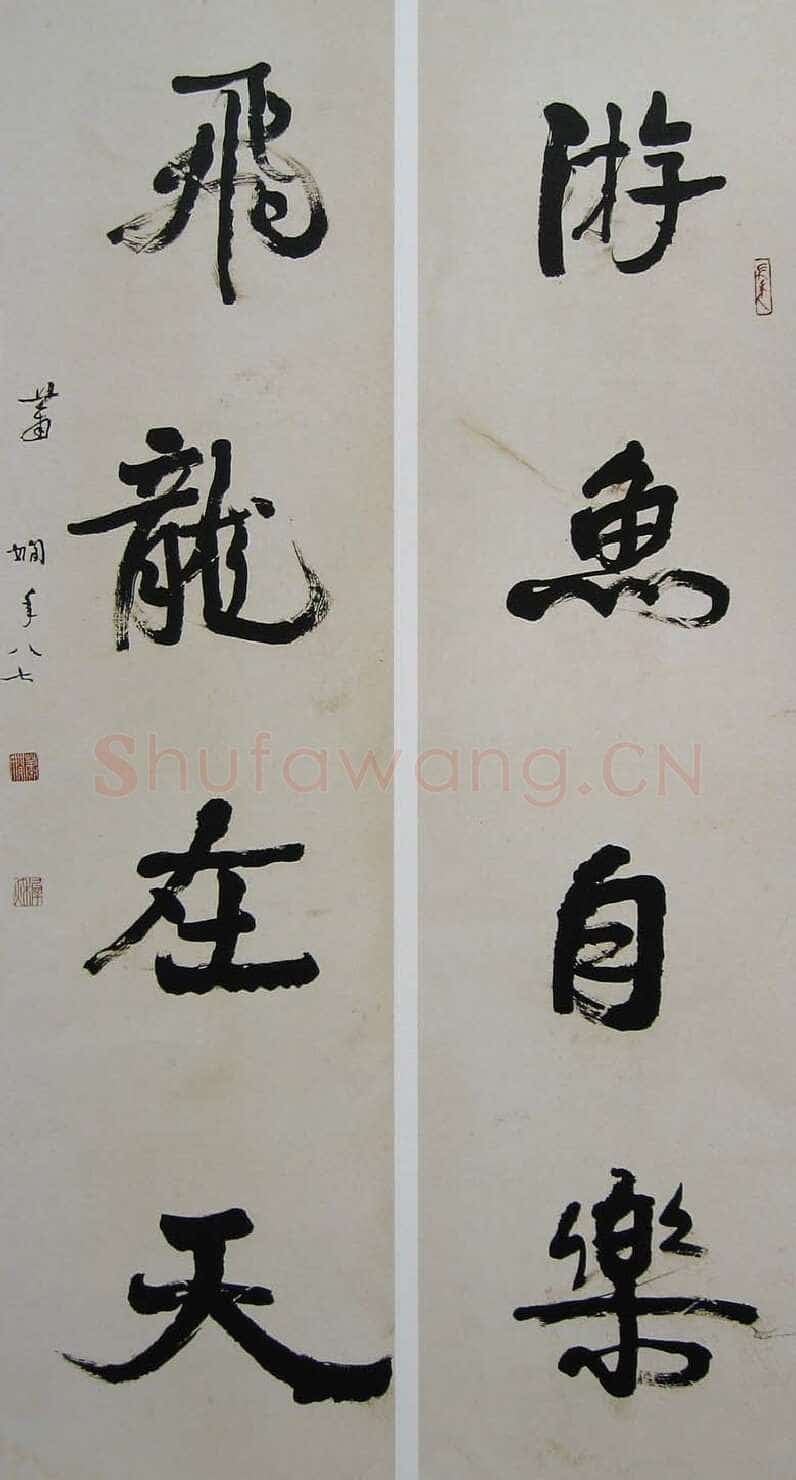 游魚自樂
飛龍在天
蕭嫻年八七
Shufawang.CN